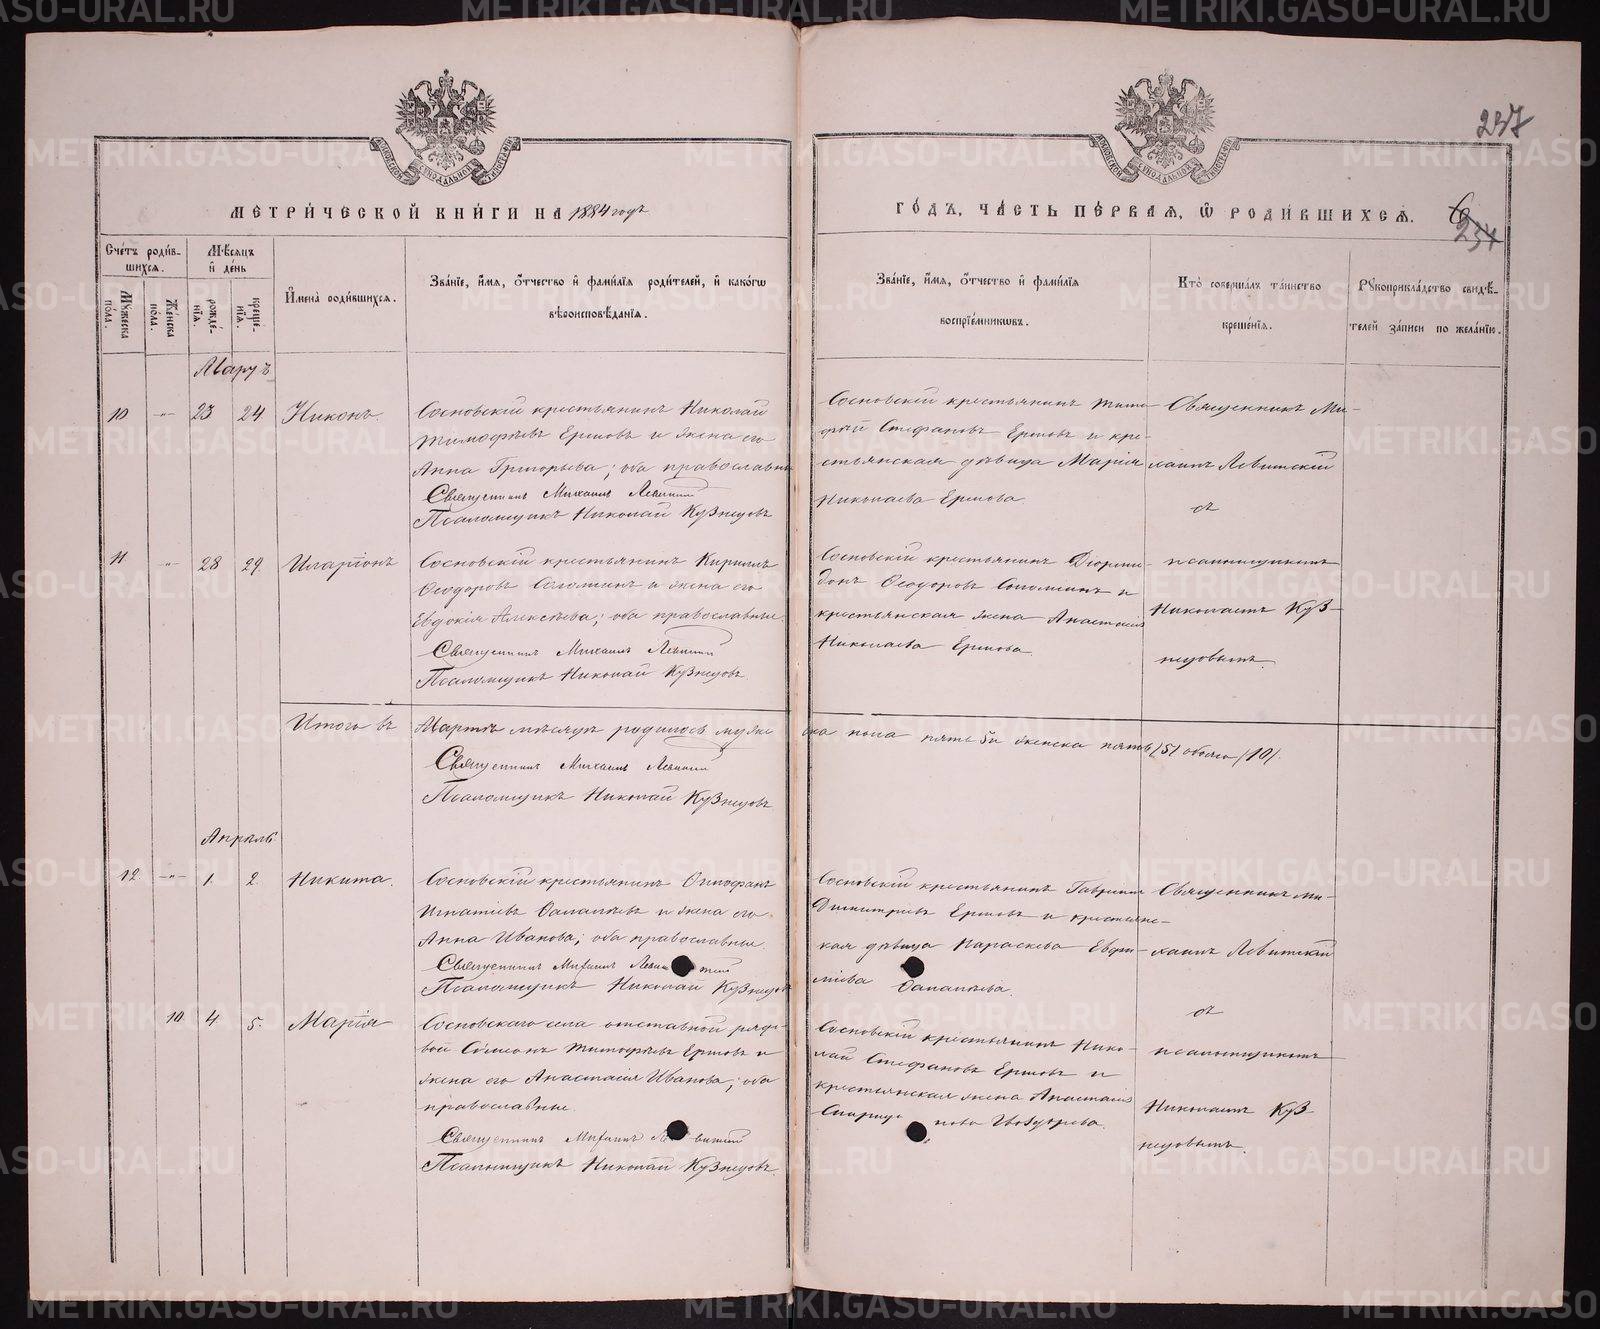 237
МЕТРИЧЕСКОЙ КНИГИ НА 1884 годъ
ГОДЪ, ЧАСТЬ ПЕРВАЯ, Ѡ РОДИВШИХСЯ.
234
Счетъ родив-
шихся.
Мѣсяцъ
и день
Мужеска
пола.
Женска
пола.
рожде-
нія.
креще-
нія.
Имена родившихся.
Званіе, имя, отчество и фамилія родителей, и какогѡ
вѣроисповѣданія.
Званіе, имя, отчество и фамилія
воспріемниковъ.
Кто совершалъ таинство
крещенія.
Рукоприкладство свидѣ-
телей записи по желанію.
Мартъ
10 -"- 23 24 Никонъ.
Сосновскій крестьянинъ Николай
Тимоѳѣевъ Ершовъ и жена его
Анна Григорьева; оба православны
Священникъ Михаилъ Левитскій
Псаломщикъ Николай Кузнецовъ
Сосновскій крестьянинъ Тимо-
ѳей Стефановъ Ершовъ и кре-
стьянская дѣвица Марія
Николаева Ершова
Священникъ Ми-
хаилъ Левитскій
съ
псаломщикомъ
Николаемъ Куз-
нецовымъ.
11 -"- 28 29. Иларіонъ
Сосновскій крестьянинъ Кириллъ
Ѳеодоровъ Соломеинъ и жена его
Евдокія Алексѣева; оба православные.
Священникъ Михаилъ Левитскій
Псаломщикъ Николай Кузнецовъ.
Сосновскій крестьянинъ Діоми-
донъ Ѳеодоровъ Соломеинъ и
крестьянская жена Анастасія
Николаева Ершова.
Итого въ Мартѣ мѣсяцѣ родилось муже
ска пола пять /5/ женска пять /5/ обоего /10/.
Священникъ Михаилъ Левитскій
Псаломщикъ Николай Кузнецовъ
Апрѣль
12 -"- 1. 2. Никита.
Сосновскій крестьянинъ
Игнатіевъ и жена его
Анна Иванова; оба православные.
Священникъ Михаилъ Левитскій
Псаломщикъ Николай Кузнецовъ
Сосновскій крестьянинъ Гавріилъ
Димитріевъ Ершовъ и крестьянс-
кая дѣвица Параскева Евфи-
міева
Священникъ Ми-
хаилъ Левитскій
съ
псаломщикомъ
Николаемъ Куз-
нецовымъ.
10 4 5. Марія
Сосновскаго села отставной рядо-
вой Сѵмеонъ Тимоѳѣевъ Ершовъ и
жена его Анастасія Иванова; оба
православные.
Священникъ Михаилъ Левитскій
Псаломщикъ Николай Кузнецовъ.
Сосновскій крестьянинъ Нико-
лай Стефановъ Ершовъ и
крестьянская жена Анастасія
METRIKI.GASO-URAL.RU